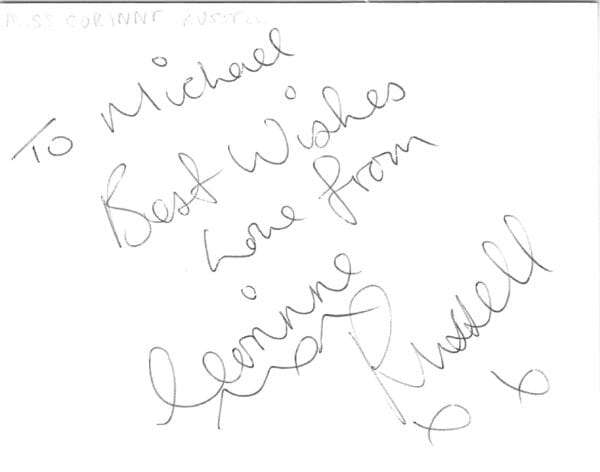 MISS CORINNE RUSSELL
To Michael
Best Wishes
Love from
Corinne
Russell
x x